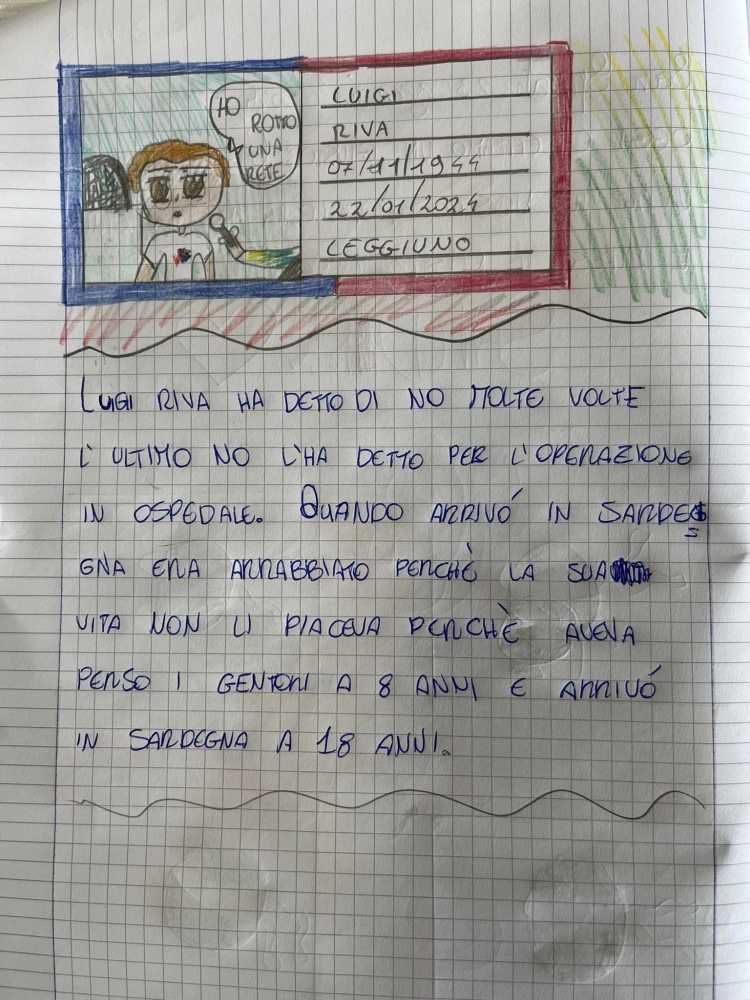 HO
ROTTO
UNA
RETE
LUIGI
RIVA
07/11/1944
22/01/2024
LEGGIUNO
LUIGI RIVA HA DETTO DI NO MOLTE VOLTE
L'ULTIMO NO L'HA DETTO PER L'OPERAZIONE
IN OSPEDALE. QUANDO ARRIVÓ IN SARDE
GNA ERA ARRABBIATO PERCHÈ LA SUA
VITA NON LI PIACEVA PERCHÈ AVEVA
PERSO I GENTORI A 8 ANNI E ARRIVÓ
IN SARDEGNA A 18 ANNI.